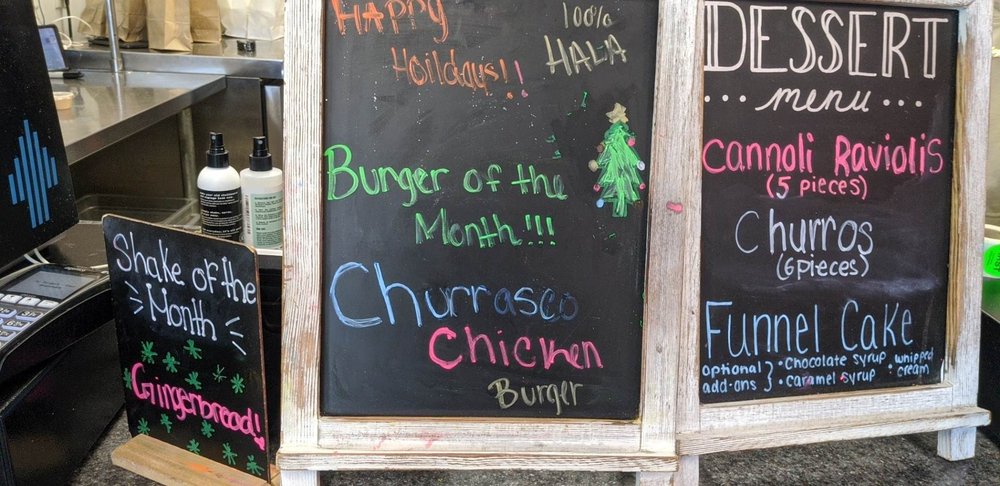 Shake of the
Month
Gingerbread!
Happy
Hoildays!!
100%
HALA
Burger of the
Month!!!
Churrasco
Chicken
Burger
DESSERT
...menu...
Cannoli Raviolis
(5 pieces)
Churros
(6 pieces)
Funnel Cake
optional add-ons } • Chocolate syrup • whipped cream
• caramel syrup